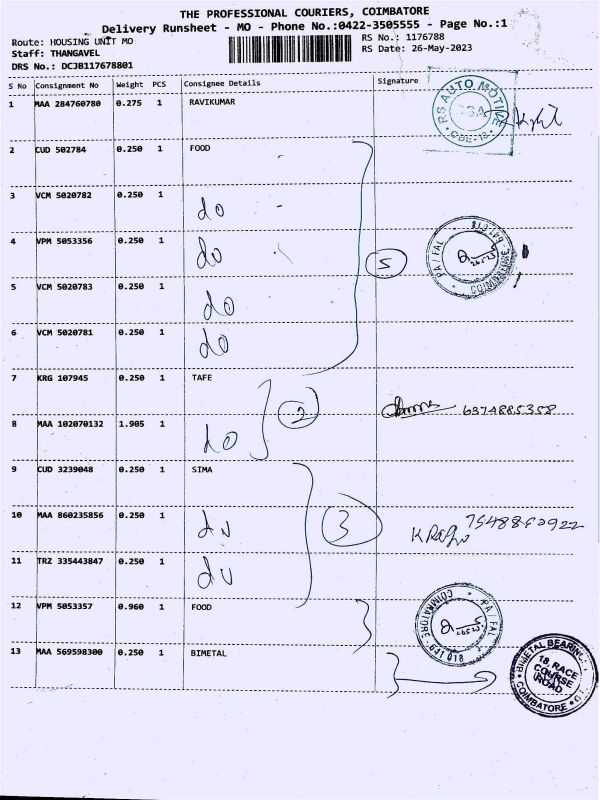 THE PROFESSIONAL COURIERS, COIMBATORE
Delivery Runsheet - MO - Phone No.:0422-3505555 - Page No.:1
Route: HOUSING UNIT MO
RS No.: 1176788
Staff: THANGAVEL
RS Date: 26-May-2023
DRS No.: DCJB117678801
S No Consignment No Weight PCS Consignee Details Signature
1 MAA 284760780 0.275 1 RAVIKUMAR
RS AUTO MOTIVE
CBE-18
2 CUD 502784 0.250 1 FOOD
3 VCM 5020782 0.250 1 do
4 VPM 5053356 0.250 1 do
PA / FAL
COIMBATORE - 641 018
5
5 VCM 5020783 0.250 1 do
6 VCM 5020781 0.250 1 do
7 KRG 107945 0.250 1 TAFE
2
6374885358
8 MAA 102070132 1.905 1 do
9 CUD 3239048 0.250 1 SIMA
10 MAA 860235856 0.250 1 do
3
11 TRZ 335443847 0.250 1 do
12 VPM 5053357 0.960 1 FOOD
PA / FAL
COIMBATORE - 641 018
13 MAA 569598300 0.250 1 BIMETAL
BIMETAL BEARING
18, RACE
COURSE
ROAD
COIMBATORE